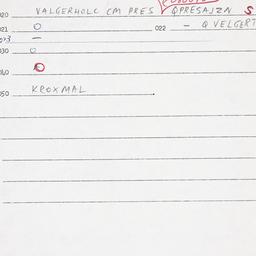 020 VALGERHOLC CM PRES QPRESAJZN S
021 O 022 – Q VELGERT
023 –
030 O
040 O
050 KROXMAL